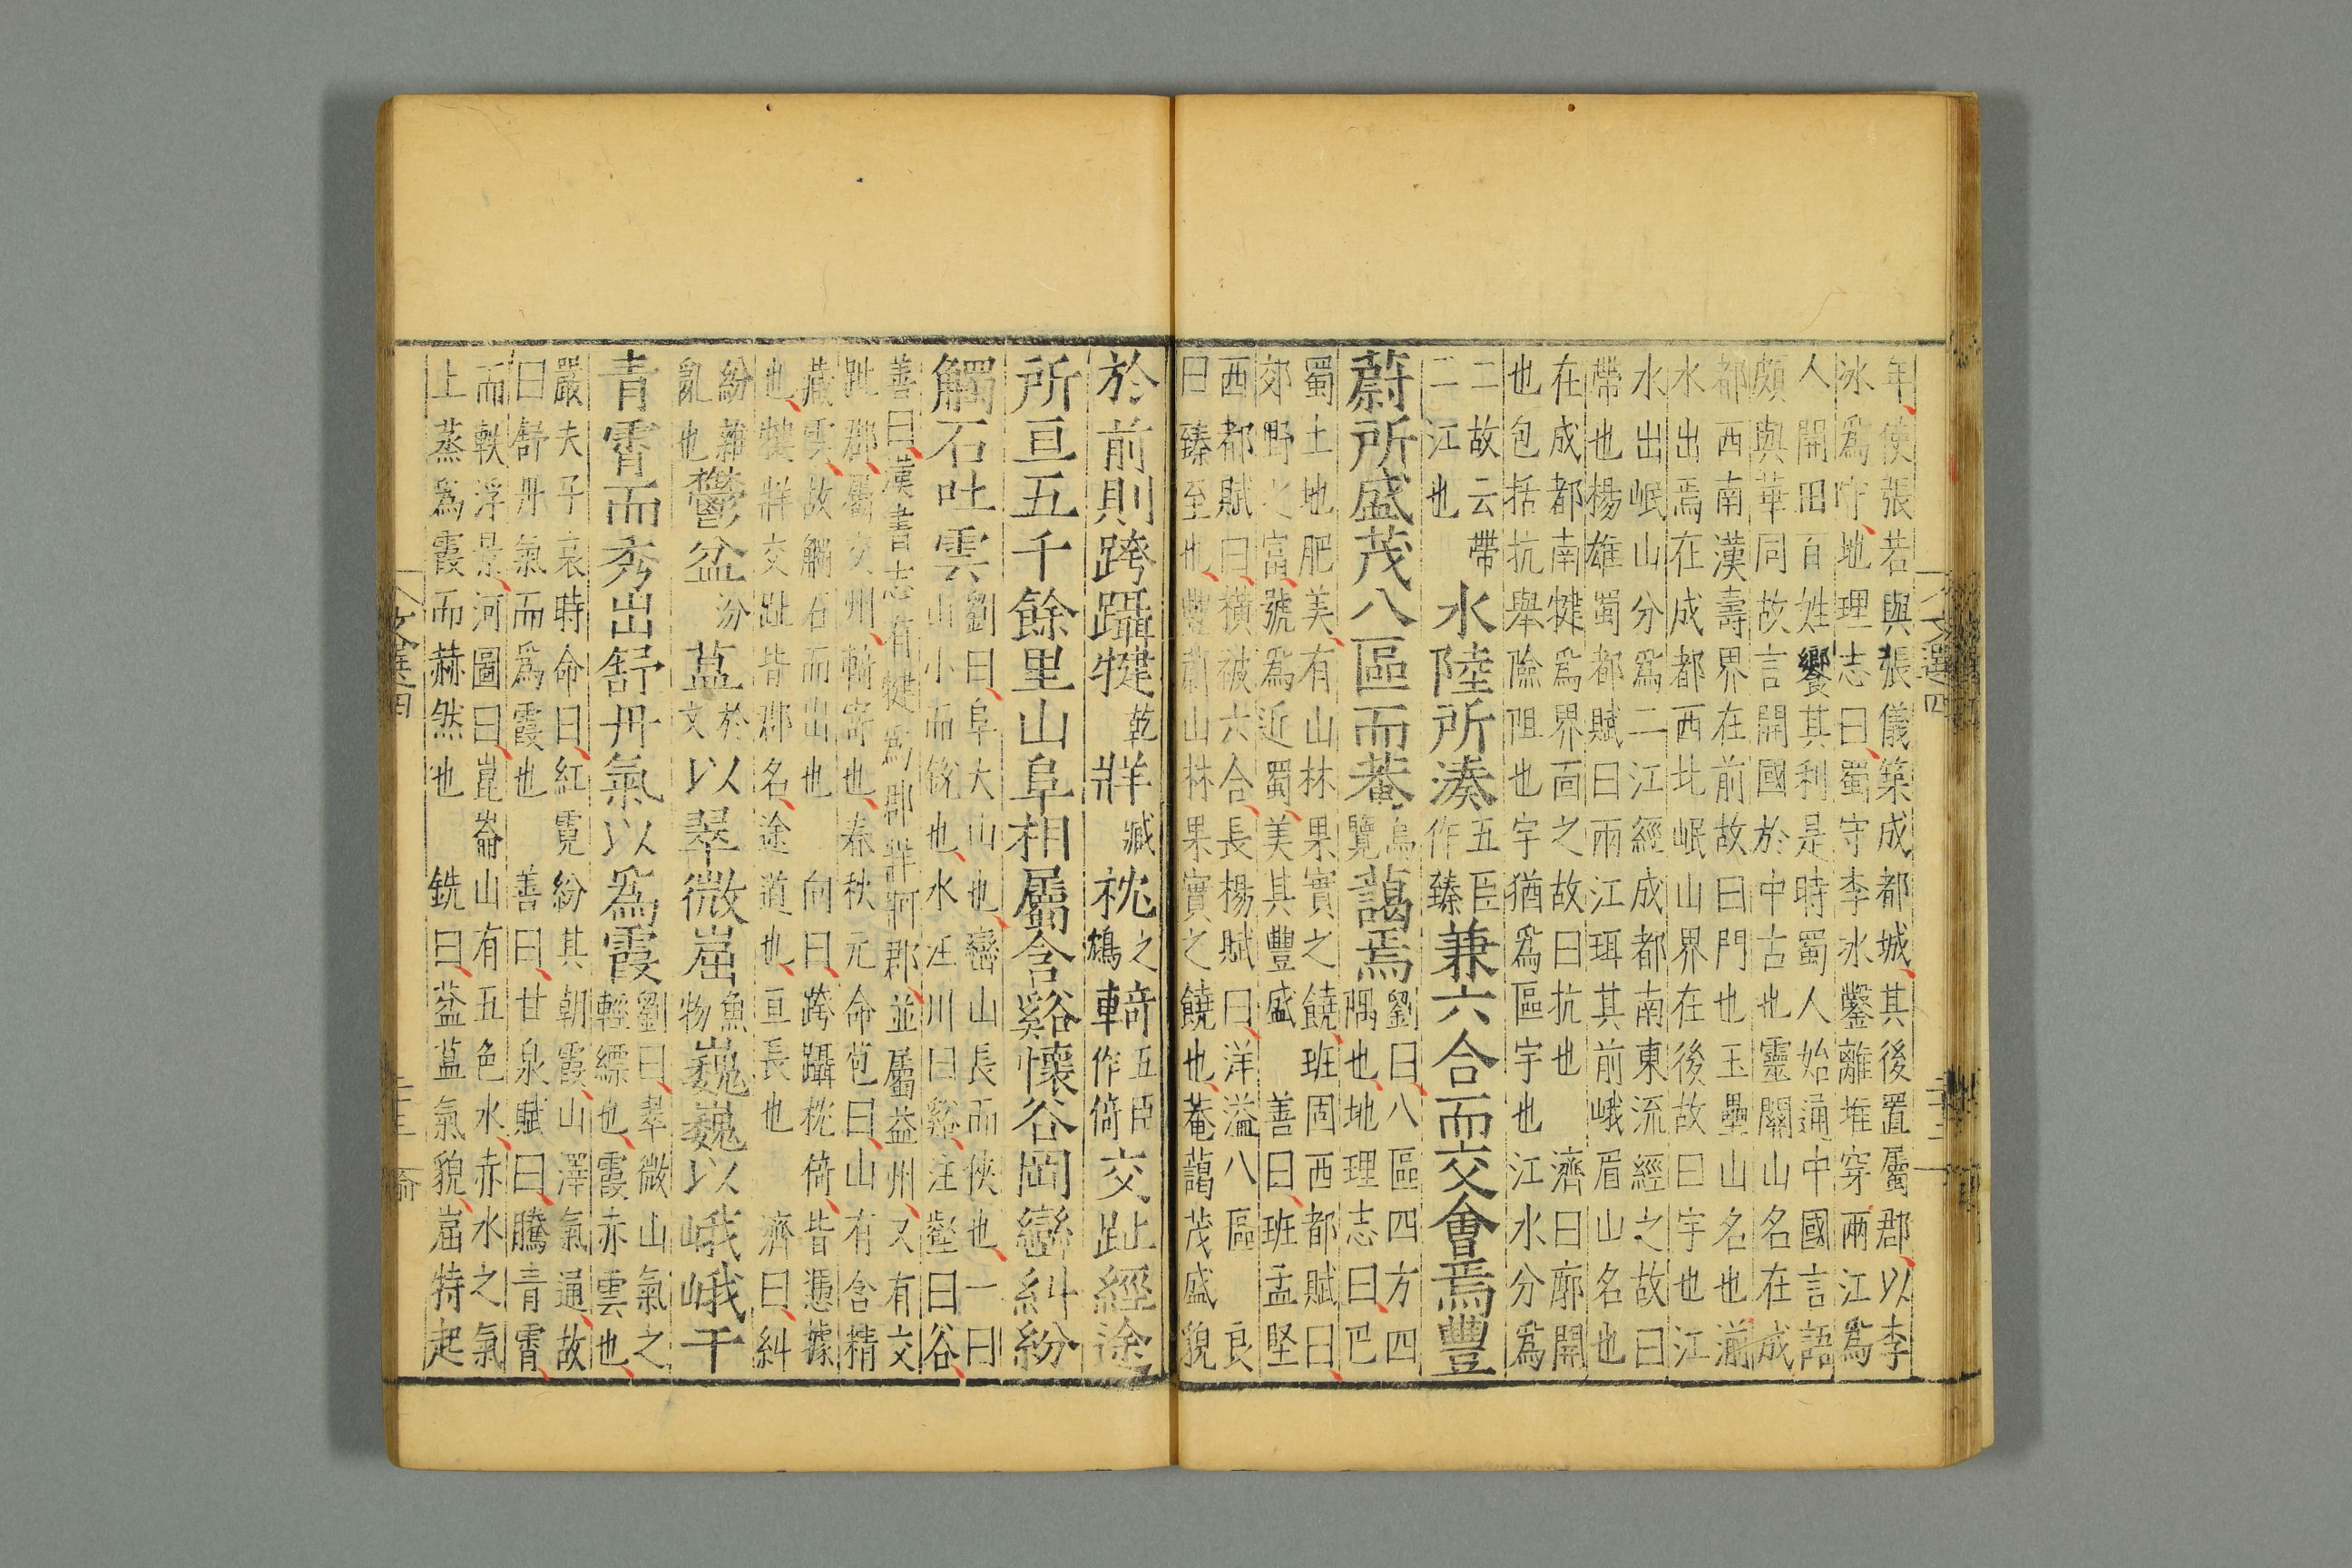 年使張若與張儀築成都城其後置屬郡以李
冰爲守地理志曰蜀守李冰鑿離堆穿兩江爲
人開田百姓饗其利是時蜀人始通中國言語
頗與華同故言開國於中古也靈關山名在成
都西南漢壽界在前故曰門也玉壘山名也湔
水出焉在成都西北岷山界在後故曰宇也江
水出岷山分爲二江經成都南東流經之故曰
帶也楊雄蜀都賦曰兩江珥其前峨眉山名也
在成都南犍爲界面之故曰抗也 濟曰廓開
也包括抗舉險阻也宇猶爲區宇也江水分爲
二故云帶
二江也
水陸所湊
五臣
作臻
兼六合而交會焉豐
蔚所盛茂八區而菴
烏
覽
藹焉
劉曰八區四方四
隅也地理志曰巴
蜀土地肥美有山林果實之饒班固西都賦曰
郊野之富號爲近蜀美其豐盛 善曰班孟堅
西都賦曰橫被六合長楊賦曰洋溢八區 良
曰臻至也豐蔚山林果實之饒也菴藹茂盛貌
於前則跨躡犍
乾
牂
臧
㭈
之
鴆
輢
五臣
作倚
交趾經途
所亘五千餘里山阜相屬含谿懷谷岡巒糾紛
觸石吐雲
劉曰阜大山也巒山長而狹也一曰
山小而銳也水注川曰谿注壑曰谷
善曰漢書志有犍爲郡牂牁郡並屬益州又有交
趾郡屬交州輢寄也春秋元命苞曰山有含精
藏雲故觸石而出也 向曰跨躡枕倚皆憑據
也犍牂交趾皆郡名途道也亘長也 濟曰糾
紛雜
亂也
鬱盆
汾
葐
於
文
以翠微崫
魚
物
巍巍以峨峨干
青霄而秀出舒丹氣以爲霞
劉曰翠微山氣之
輕縹也霞赤雲也
嚴夫子哀時命曰紅霓紛其朝霞山澤氣通故
曰舒丹氣而爲霞也 善曰甘泉賦曰騰青霄
而軼浮景河圖曰崑崙山有五色水赤水之氣
上蒸爲霞而赫然也 銑曰葐蒀氣貌崫特起
文選四